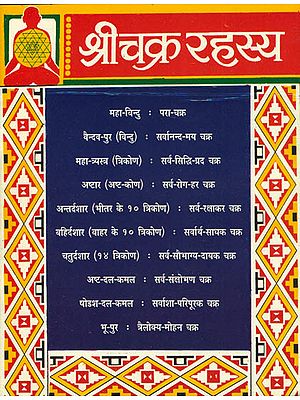 श्रीचक्र रहस्य
महा-विन्दु : परा-चक्र
वैन्दव-पुर (विन्दु) : सर्वानन्द-मय चक्र
महा-त्र्यस्त्र (त्रिकोण) : सर्व-सिद्धि-प्रद चक्र
अष्टार (अष्ट-कोण) : सर्व-रोग-हर चक्र
अन्तर्दशार (भीतर के १० त्रिकोण) : सर्व-रक्षाकर चक्र
वहिर्दशार (बाहर के १० त्रिकोण) : सर्वार्थ-साधक चक्र
चतुर्दशार (१४ त्रिकोण) : सर्व-सौभाग्य-दायक चक्र
अष्ट-दल-कमल : सर्व-संक्षोभण चक्र
षोडश-दल-कमल : सर्वाशा-परिपूरक चक्र
भू-पुर : त्रैलोक्य-मोहन चक्र